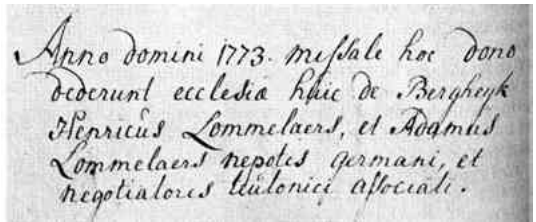 Anno domini 1773. missale hoc dono
dederunt ecclesiæ huic de Bergheyk
Henricus Lommelaers, et Adamus
Lommelaers nepotes germani, et
negotiatores teutonici associati.